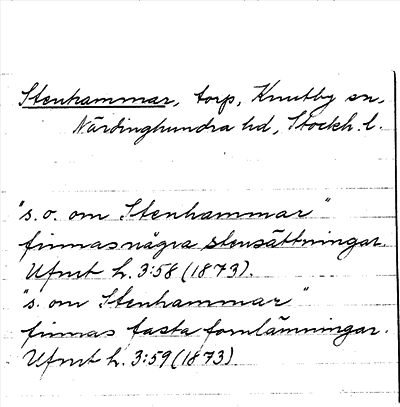 Stenhammar, torp, Knutby sn,
Närdinghundra hd, Stockh. l.
"s. o. om Stenhammar"
finnas några stensättningar.
Ufmt h. 3:58 (1873).
"s. om Stenhammar"
finnas fasta fornlämningar.
Ufmt h. 3:59 (1873).